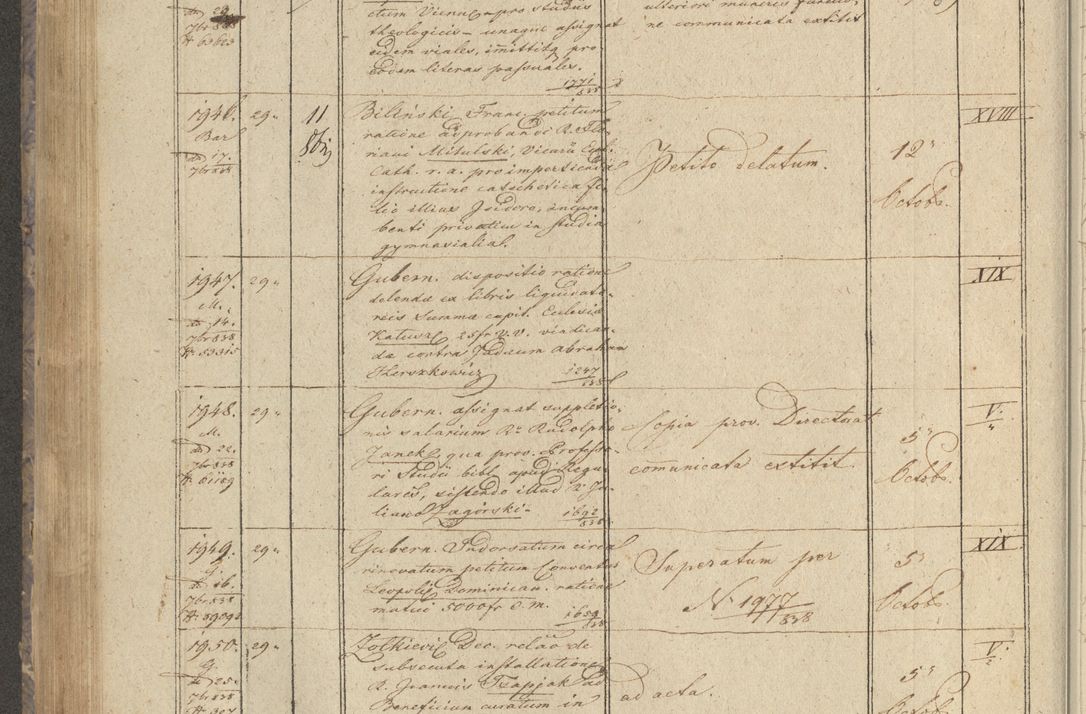 ctum Viennæ pro studus
theologicis – unaque assignat
eidem viales, im̃ittitq pro
eodem literas passuales.
1771/838
ulteriori muneris functio,
ne communicata extitit
1946. 29„ 11 8bris
Bar
ad 17.
7br 838
Biliński Franc. petitum
ratione adprobandi R. Flo-
riani Mikulski, Vicarii Eccl.
Cath. r. a. pro impertienda
instructione catechetica fi-
lio illius Isidoro, incum-
benti privatim in studia
gymnasialia.
Petito delatum.
12„
Octobr.
XVIII
1947. 29„
M.
ad 14.
7br 838
N. 53315
Gubern. dispositio ratione
delendæ ex libris liquidato-
reis Summæ capit. Ecclesiæ
Katusz 25 fr V.V. vindican-
dæ contra Judæum Abraham
Herszkowicz
1247/838
XIX
1948. 29„
M.
ad 22.
7br 838
N. 61189
Gubern. assignat suppleto,
nis salarium Rdo Rudolpho
Janek, qua prov. Professo-
ri Studii bibl. apud Regu-
lares, sistendo illud R. Ju-
liano Zagórski –
1692/838
Copia prov. Directorat
comunicata extitit.
5„
Octobr.
V.
1949. 29„
ad 16.
7br 838
Gubern. Indorsatum circa
rinovatum petitum Conventus
Leopolis Dominican. ratione
mutui 5000 fr C. M.
1659/838
Superatum per
N. 1977/838
5„
Octobr.
XIX
1950. 29„
G.
ad 25.
7br 838
Zołkievie Dec. relaõ de
subsecuta installatione
R. Joannis Trapjak ad
Beneficium curatum in
ad acta.
5„
Octobr.
V.